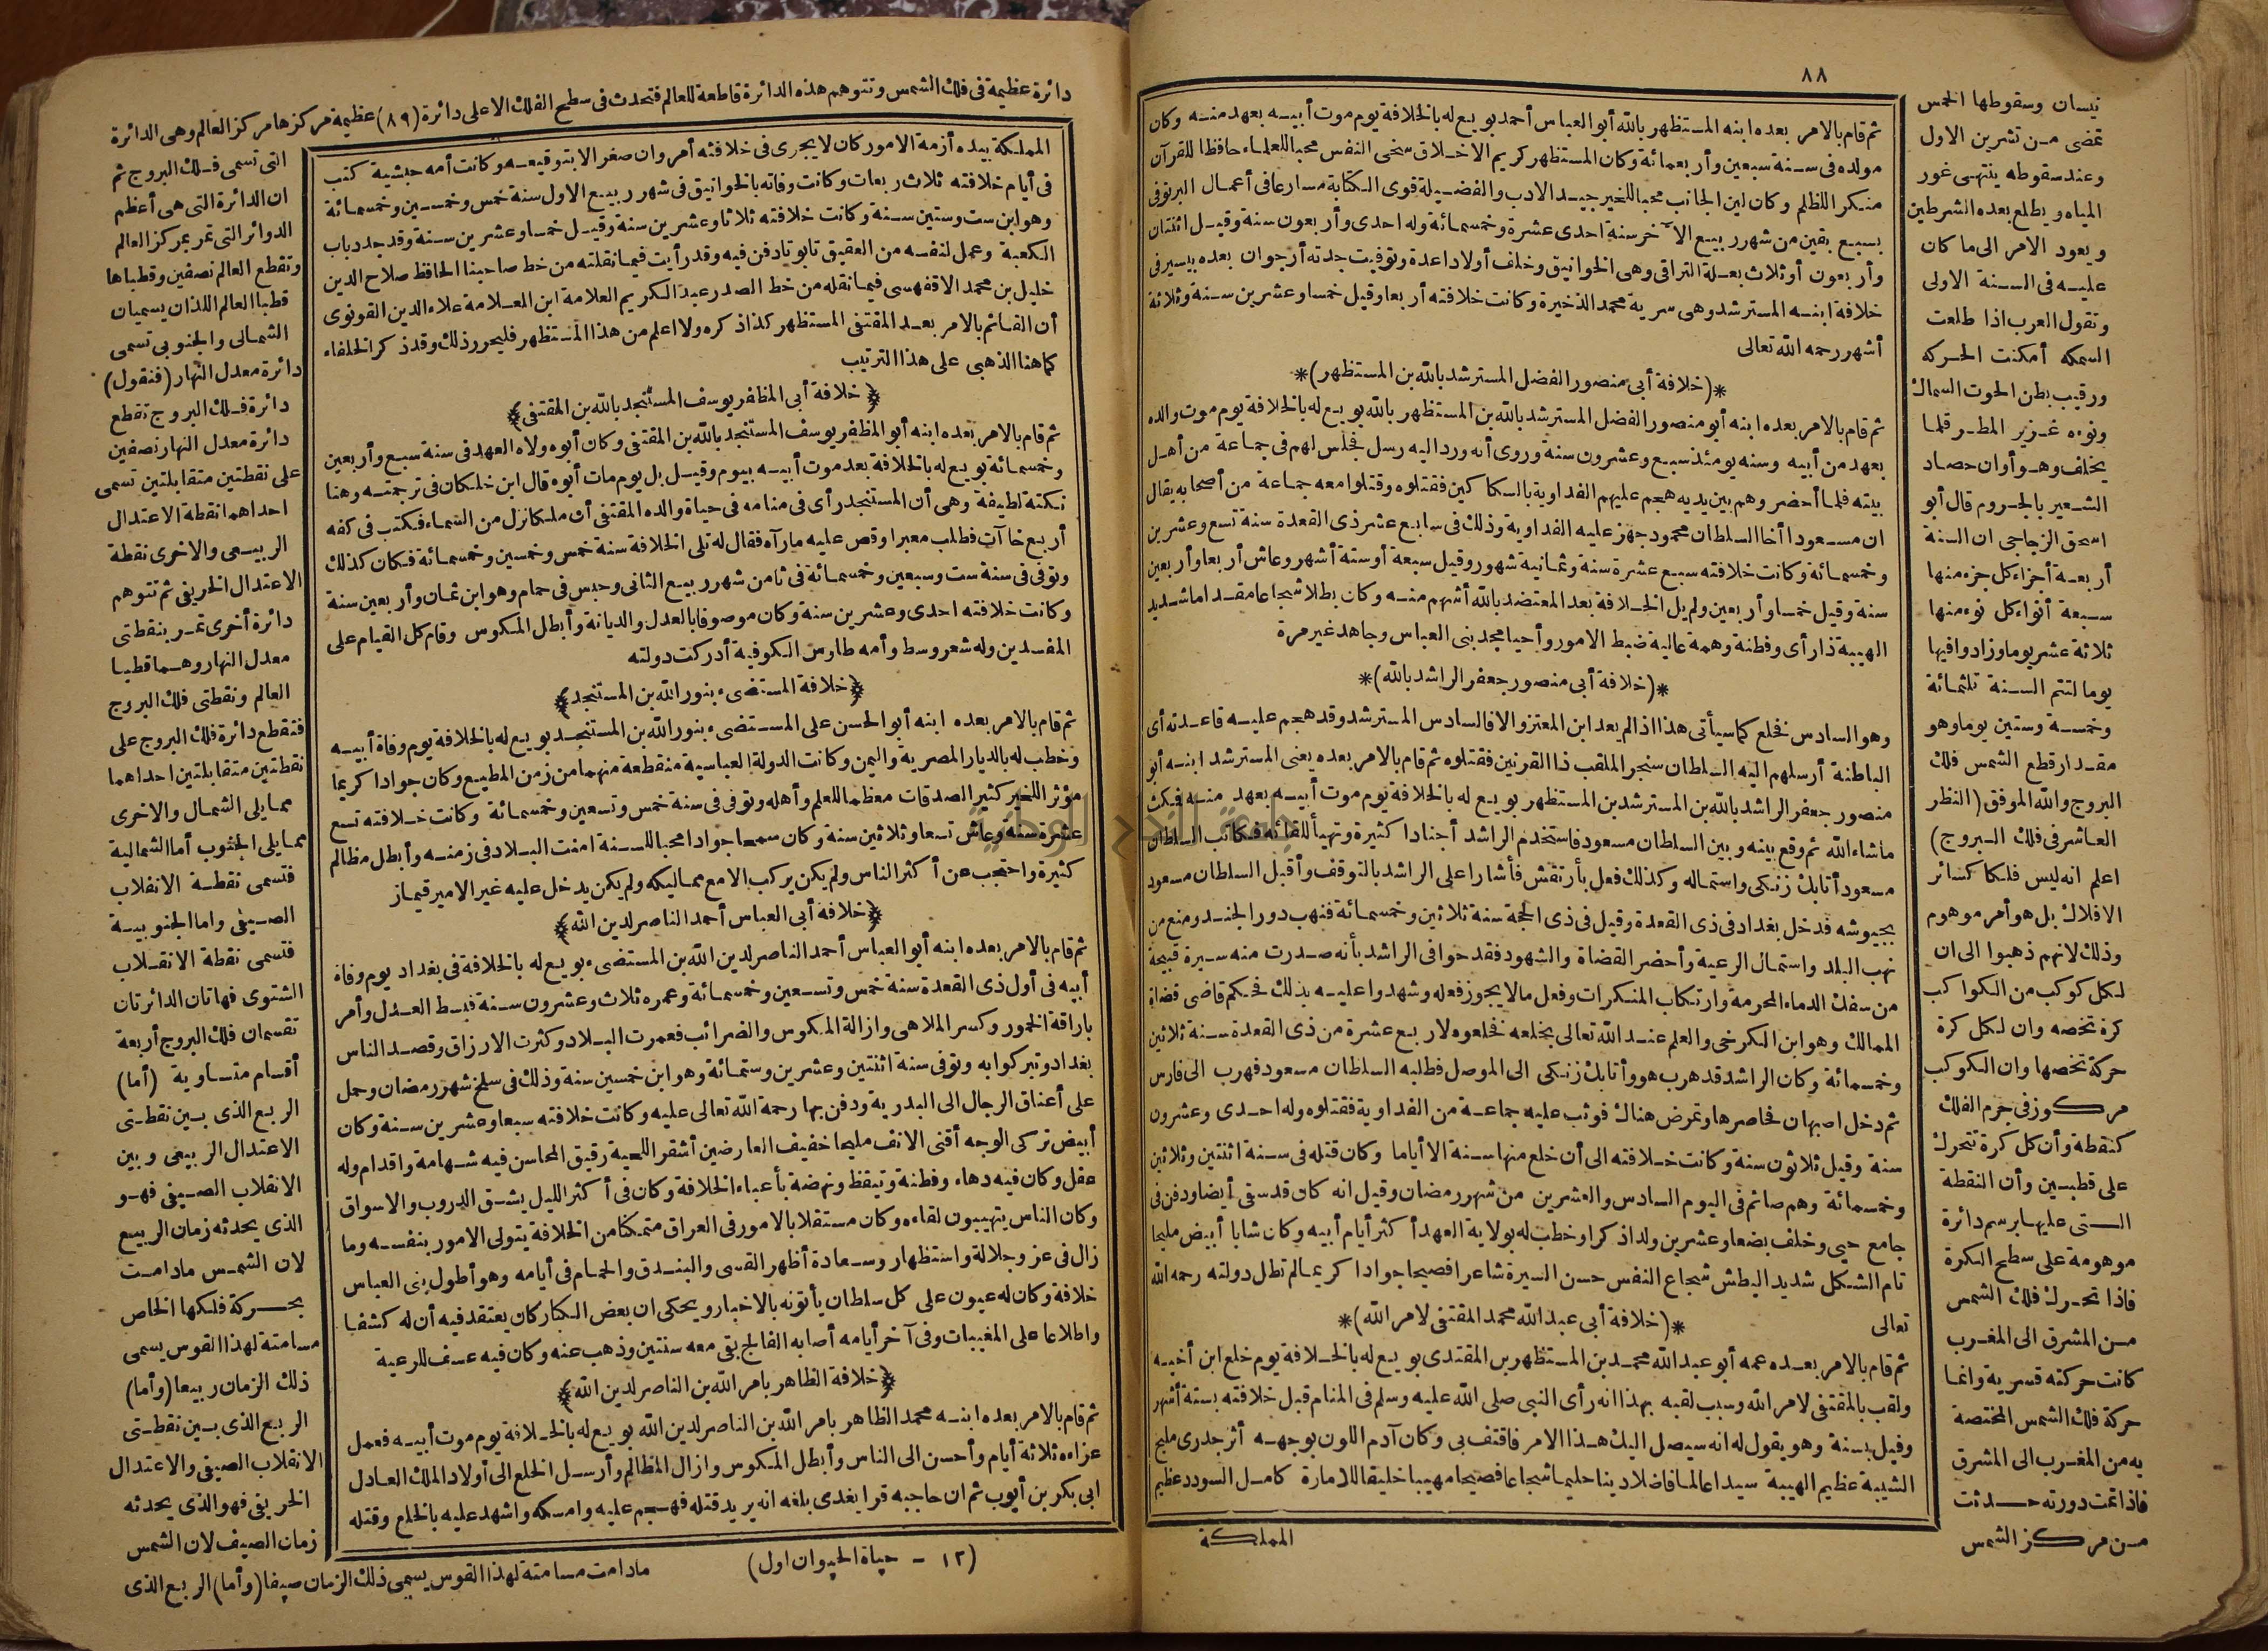 ٨٨
ثم قام بالامر بعده ابنه المستظهر بالله أبو العباس أحمد بويع له بالخلافة يوم موت أبيه بعهد منه وكان
مولده فى سنة سبعين وأربعمائة وكان المستظهر كريم الاخلاق سخى النفس محبا للعلماء حافظا للقرآن
منكرا للظلم وكان لين الجانب محبا للخير جيد الادب والفضيلة قوى الكتابة مسارعا فى أعمال البر توفى
بسبع بقين من شهر ربيع الآخر سنة احدى عشرة وخمسمائة وله احدى وأربعون سنة وقيل اثنتان
وأربعون أو ثلاث بعلة التراقى وهى الخوانيق وخلف أولادا عدة وتوفيت جدته أرجوان بعده بيسير فى
خلافة ابنه المسترشد وهى سرية محمد الذخيرة وكانت خلافته أربعا وقيل خمسا وعشرين سنة وثلاثة
أشهر رحمه الله تعالى
*(خلافة أبى منصور الفضل المسترشد بالله بن المستظهر)*
ثم قام بالامر بعده ابنه أبو منصور الفضل المسترشد بالله بن المستظهر بالله بويع له بالخلافة يوم موت والده
بعهد من أبيه وسنه يومئذ سبع وعشرون سنة وروى أنه ورد اليه رسل فجلس لهم فى جماعة من أهل
بيته فلما أحضر وهم بين يديه هجم عليهم الفداوية بالسكاكين فقتلوه وقتلوا معه جماعة من أصحابه يقال
ان مسعودا أخا السلطان محمود جهز عليه الفداوية وذلك فى سابع عشر ذى القعدة سنة تسع وعشرين
وخمسمائة وكانت خلافته سبع عشرة سنة وثمانية شهور وقيل سبعة أو ستة أشهر وعاش أربعا وأربعين
سنة وقيل خمسا وأربعين ولم يل الخلافة بعد المعتضد بالله أشهم منه وكان بطلا شجاعا مقداما شديد
الهيبة ذا رأى وفطنة وهمة عالية ضبط الامور وأحيا مجد بنى العباس وجاهد غير مرة
*(خلافة أبى منصور جعفر الراشد بالله)*
وهو السادس فخلع كما سيأتى هذا اذا لم يعد ابن المعتز والا فالسادس المسترشد وقد هجم عليه قاعدته أى
الباطنة أرسلهم اليه السلطان سنجر الملقب ذا القرنين فقتلوه ثم قام بالامر بعده يعنى المسترشد ابنه أبو
منصور جعفر الراشد بالله بن المسترشد بن المستظهر بويع له بالخلافة يوم موت أبيه بعهد منه فمكث
ماشاء الله ثم وقع بينه وبين السلطان مسعود فاستخدم الراشد أجنادا كثيرة وتهيأ للقائه فكاتب السلطان
مسعود أتابك زنكى واستماله وكذلك فعل بأرتقش فأشارا على الراشد بالتوقف وأقبل السلطان مسعود
بجيوشه فدخل بغداد فى ذى القعدة وقيل فى ذى الحجة سنة ثلاثين وخمسمائة فنهب دور الجند ومنع من
نهب البلد واستمال الرعية وأحضر القضاة والشهود فقدحوا فى الراشد بأنه صدرت منه سيرة قبيحة
من سفك الدماء المحرمة وارتكاب المنكرات وفعل مالا يجوز فعله وشهدوا عليه بذلك فحكم قاضى قضاة
الممالك وهو ابن الكرخى والعلم عند الله تعالى بخلعه فخلعوه لاربع عشرة من ذى القعدة سنة ثلاثين
وخمسمائة وكان الراشد قد هرب هو وأتابك زنكى الى الموصل فطلبه السلطان مسعود فهرب الى فارس
ثم دخل اصبهان فحاصرها وتمرض هناك فوثب عليه جماعة من الفداوية فقتلوه وله احدى وعشرون
سنة وقيل ثلاثون سنة وكانت خلافته الى أن خلع منها سنة الا أياما وكان قتله فى سنة اثنتين وثلاثين
وخمسمائة وهم صائم فى اليوم السادس والعشرين من شهر رمضان وقيل انه كان قد سقى أيضا ودفن فى
جامع حيى وخلف بضعا وعشرين ولدا ذكرا وخطب له بولاية العهد أكثر أيام أبيه وكان شابا أبيض مليحا
تام الشكل شديد البطش شجاع النفس حسن السيرة شاعرا فصيحا جوادا كريما لم تطل دولته رحمه الله
تعالى
*(خلافة أبى عبد الله محمد المقتفى لامر الله)*
ثم قام بالامر بعده عمه أبو عبد الله محمد بن المستظهر بن المقتدى بويع له بالخلافة يوم خلع ابن أخيه
ولقب بالمقتفى لامر الله وسبب لقبه بهذا انه رأى النبى صلى الله عليه وسلم فى المنام قبل خلافته بستة أشهر
وقيل بسنة وهو يقول له انه سيصل اليك هذا الامر فاقتف بى وكان آدم اللون بوجهه أثر جدرى مليح
الشيبة عظيم الهيبة سيدا عالما فاضلا دينا حليما شجاعا فصيحا مهيبا خليقا للامارة كامل السودد عظيم
المملكة
نيسان وسقوطها الخمس
تمضى من تشرين الاول
وعند سقوطه ينتهى غور
المياه ويطلع بعده الشرطين
ويعود الامر الى ما كان
عليه فى السنة الاولى
وتقول العرب اذا طلعت
السمكه أمكنت الحركه
ورقيب بطن الحوت السماك
ونوءه غزير المطر قلما
يخلف وهو أوان حصاد
الشعير بالجروم قال أبو
اسحق الزجاجى ان السنة
أربعة أجزاء كل جزء منها
سبعة أنواء كل نوء منها
ثلاثة عشر يوما وزادوا فيها
يوما لتتم السنة ثلثمائة
وخمسة وستين يوما وهو
مقدار قطع الشمس فلك
البروج والله الموفق (النظر
العاشر فى فلك البروج)
اعلم انه ليس فلكا كسائر
الافلاك بل هو أمر موهوم
وذلك لانهم ذهبوا الى ان
لكل كوكب من الكواكب
كرة تخصه وان لكل كرة
حركة تخصها وان الكوكب
مركوز فى جرم الفلك
كنقطة وأن كل كرة تتحرك
على قطبين وأن النقطة
التى عليها يرسم دائرة
موهومة على سطح الكرة
فاذا تحرك فلك الشمس
من المشرق الى المغرب
كانت حركته قسرية وانما
حركة فلك الشمس المختصة
به من المغرب الى المشرق
فاذا تمت دورته حدثت
من مركز الشمس
دائرة عظيمة فى فلك الشمس وتتوهم هذه الدائرة قاطعة للعالم فتحدث فى سطح الفلك الاعلى دائرة (٨٩) عظيمة مركزها مركز العالم وهى الدائرة
المملكة بيده أزمة الامور كان لا يجرى فى خلافته أمر وان صغر الا بتوقيعه وكانت أمه حبشية كتب
فى أيام خلافته ثلاث ربعات وكانت وفاته بالخوانيق فى شهر ربيع الاول سنة خمس وخمسين وخمسمائة
وهو ابن ست وستين سنة وكانت خلافته ثلاثا وعشرين سنة وقيل خمسا وعشرين سنة وقد جدد باب
الكعبة وعمل لنفسه من العقيق تابوتا دفن فيه وقد رأيت فيما نقلته من خط صاحبنا الحافظ صلاح الدين
خليل بن محمد الاقفهسى فيما نقله من خط الصدر عبد الكريم العلامة ابن العلامة علاء الدين القونوى
أن القائم بالامر بعد المقتفى المستظهر كذا ذكره ولا اعلم من هذا المستظهر فليحرر ذلك وقد ذكر الخلفاء
كما هنا الذهبى على هذا الترتيب
﴿خلافة أبى المظفر يوسف المستنجد بالله بن المقتفى﴾
ثم قام بالامر بعده ابنه أبو المظفر يوسف المستنجد بالله بن المقتفى وكان أبوه ولاه العهد فى سنة سبع وأربعين
وخمسمائة بويع له بالخلافة بعد موت أبيه بيوم وقيل بل يوم مات أبوه قال ابن خلكان فى ترجمته وهنا
نكتة لطيفة وهى أن المستنجد رأى فى منامه فى حياة والده المقتفى أن ملكا نزل من السماء فكتب فى كفه
أربع خاآت فطلب معبرا وقص عليه مارآه فقال له تلى الخلافة سنة خمس وخمسين وخمسمائة فكان كذلك
وتوفى فى سنة ست وسبعين وخمسمائة فى ثامن شهر ربيع الثانى وحبس فى حمام وهو ابن ثمان وأربعين سنة
وكانت خلافته احدى وعشرين سنة وكان موصوفا بالعدل والديانة وأبطل المكوس وقام كل القيام على
المفسدين وله شعر وسط وأمه طاوس الكوفية أدركت دولته
﴿خلافة المستضىء بنور الله بن المستنجد﴾
ثم قام بالامر بعده ابنه أبو الحسن على المستضىء بنور الله بن المستنجد بويع له بالخلافة يوم وفاة أبيه
وخطب له بالديار المصرية واليمن وكانت الدولة العباسية منقطعة منهما من زمن المطيع وكان جوادا كريما
مؤثر اللخير كثير الصدقات معظما للعلم وأهله وتوفى فى سنة خمس وتسعين وخمسمائة وكانت خلافته تسع
عشرة سنة وعاش تسعا وثلاثين سنة وكان سمحا جوادا محبا للسنة امنت البلاد فى زمنه وأبطل مظالم
كثيرة واحتجب عن أكثر الناس ولم يكن يركب الا مع مماليكه ولم يكن يدخل عليه غير الامير قيماز
﴿خلافة أبى العباس أحمد الناصر لدين الله﴾
ثم قام بالامر بعده ابنه أبو العباس أحمد الناصر لدين الله بن المستضىء بويع له بالخلافة فى بغداد يوم وفاة
أبيه فى أول ذى القعدة سنة خمس وتسعين وخمسمائة وعمره ثلاث وعشرون سنة فبسط العدل وأمر
باراقة الخمور وكسر الملاهى وازالة المكوس والضرائب فعمرت البلاد وكثرت الارزاق وقصد الناس
بغداد وتبركوا به وتوفى سنة اثنتين وعشرين وستمائة وهو ابن خمسين سنة وذلك فى سلخ شهر رمضان وحمل
على أعناق الرجال الى البدرية ودفن بها رحمة الله تعالى عليه وكانت خلافته سبعا وعشرين سنة وكان
أبيض تركى الوجه أقنى الانف مليحا خفيف العارضين أشقر اللحية رقيق المحاسن فيه شهامة واقدام وله
عقل وكان فيه دهاء وفطنة وتيقظ ونهضة بأعباء الخلافة وكان فى أكثر الليل يشق الدروب والاسواق
وكان الناس يتهيبون لقاءه وكان مستقلا بالامور فى العراق متمكنا من الخلافة يتولى الامور بنفسه وما
زال فى عز وجلالة واستظهار وسعادة أظهر القسى والبندق والحمام فى أيامه وهو أطول بنى العباس
خلافة وكان له عيون على كل سلطان يأتونه بالاخبار ويحكى ان بعض الكبار كان يعتقد فيه أن له كشفا
واطلاعا على المغيبات وفى آخر أيامه أصابه الفالج بقى معه سنتين وذهب عنه وكان فيه عسف للرعية
﴿خلافة الظاهر بامر الله بن الناصر لدين الله﴾
ثم قام بالامر بعده ابنه محمد الظاهر بامر الله بن الناصر لدين الله بويع له بالخلافة يوم موت أبيه فعمل
عزاءه ثلاثة أيام وأحسن الى الناس وأبطل المكوس وازال المظالم وأرسل الخلع الى أولاد الملك العادل
ابى بكر بن أيوب ثم ان حاجبه قرا بغدى بلغه انه يريد قتله فهجم عليه وامسكه واشهد عليه بالخلع وقتله
التى تسمى فلك البروج ثم
ان الدائرة التى هى أعظم
الدوائر التى تمر بمركز العالم
وتقطع العالم نصفين وقطباها
قطبا العالم اللذان يسميان
الشمالى والجنوبى تسمى
دائرة معدل النهار (فنقول)
دائرة فلك البروج تقطع
دائرة معدل النهار نصفين
على نقطتين متقابلتين تسمى
احداهما نقطة الاعتدال
الربيعى والاخرى نقطة
الاعتدال الخريفى ثم نتوهم
دائرة أخرى تمر بنقطتى
معدل النهار وهما قطبا
العالم ونقطتى فلك البروج
فتقطع دائرة فلك البروج على
نقطتين متقابلتين احداهما
مما يلى الشمال والاخرى
مما يلى الجنوب أما الشمالية
فتسمى نقطة الانقلاب
الصيفى واما الجنوبية
فتسمى نقطة الانقلاب
الشتوى فهاتان الدائرتان
تقسمان فلك البروج أربعة
أقسام متساوية (أما)
الربع الذى بين نقطتى
الاعتدال الربيعى وبين
الانقلاب الصيفى فهو
الذى يحدثه زمان الربيع
لان الشمس مادامت
بحركة فلكها الخاص
مسامتة لهذا القوس يسمى
ذلك الزمان ربيعا (وأما)
الربع الذى بين نقطتى
الانقلاب الصيفى والاعتدال
الخريفى فهو الذى يحدثه
زمان الصيف لان الشمس
مادامت مسامتة لهذا القوس يسمى ذلك الزمان صيفا (وأما) الربع الذى
(١٢ - حياة الحيوان اول)